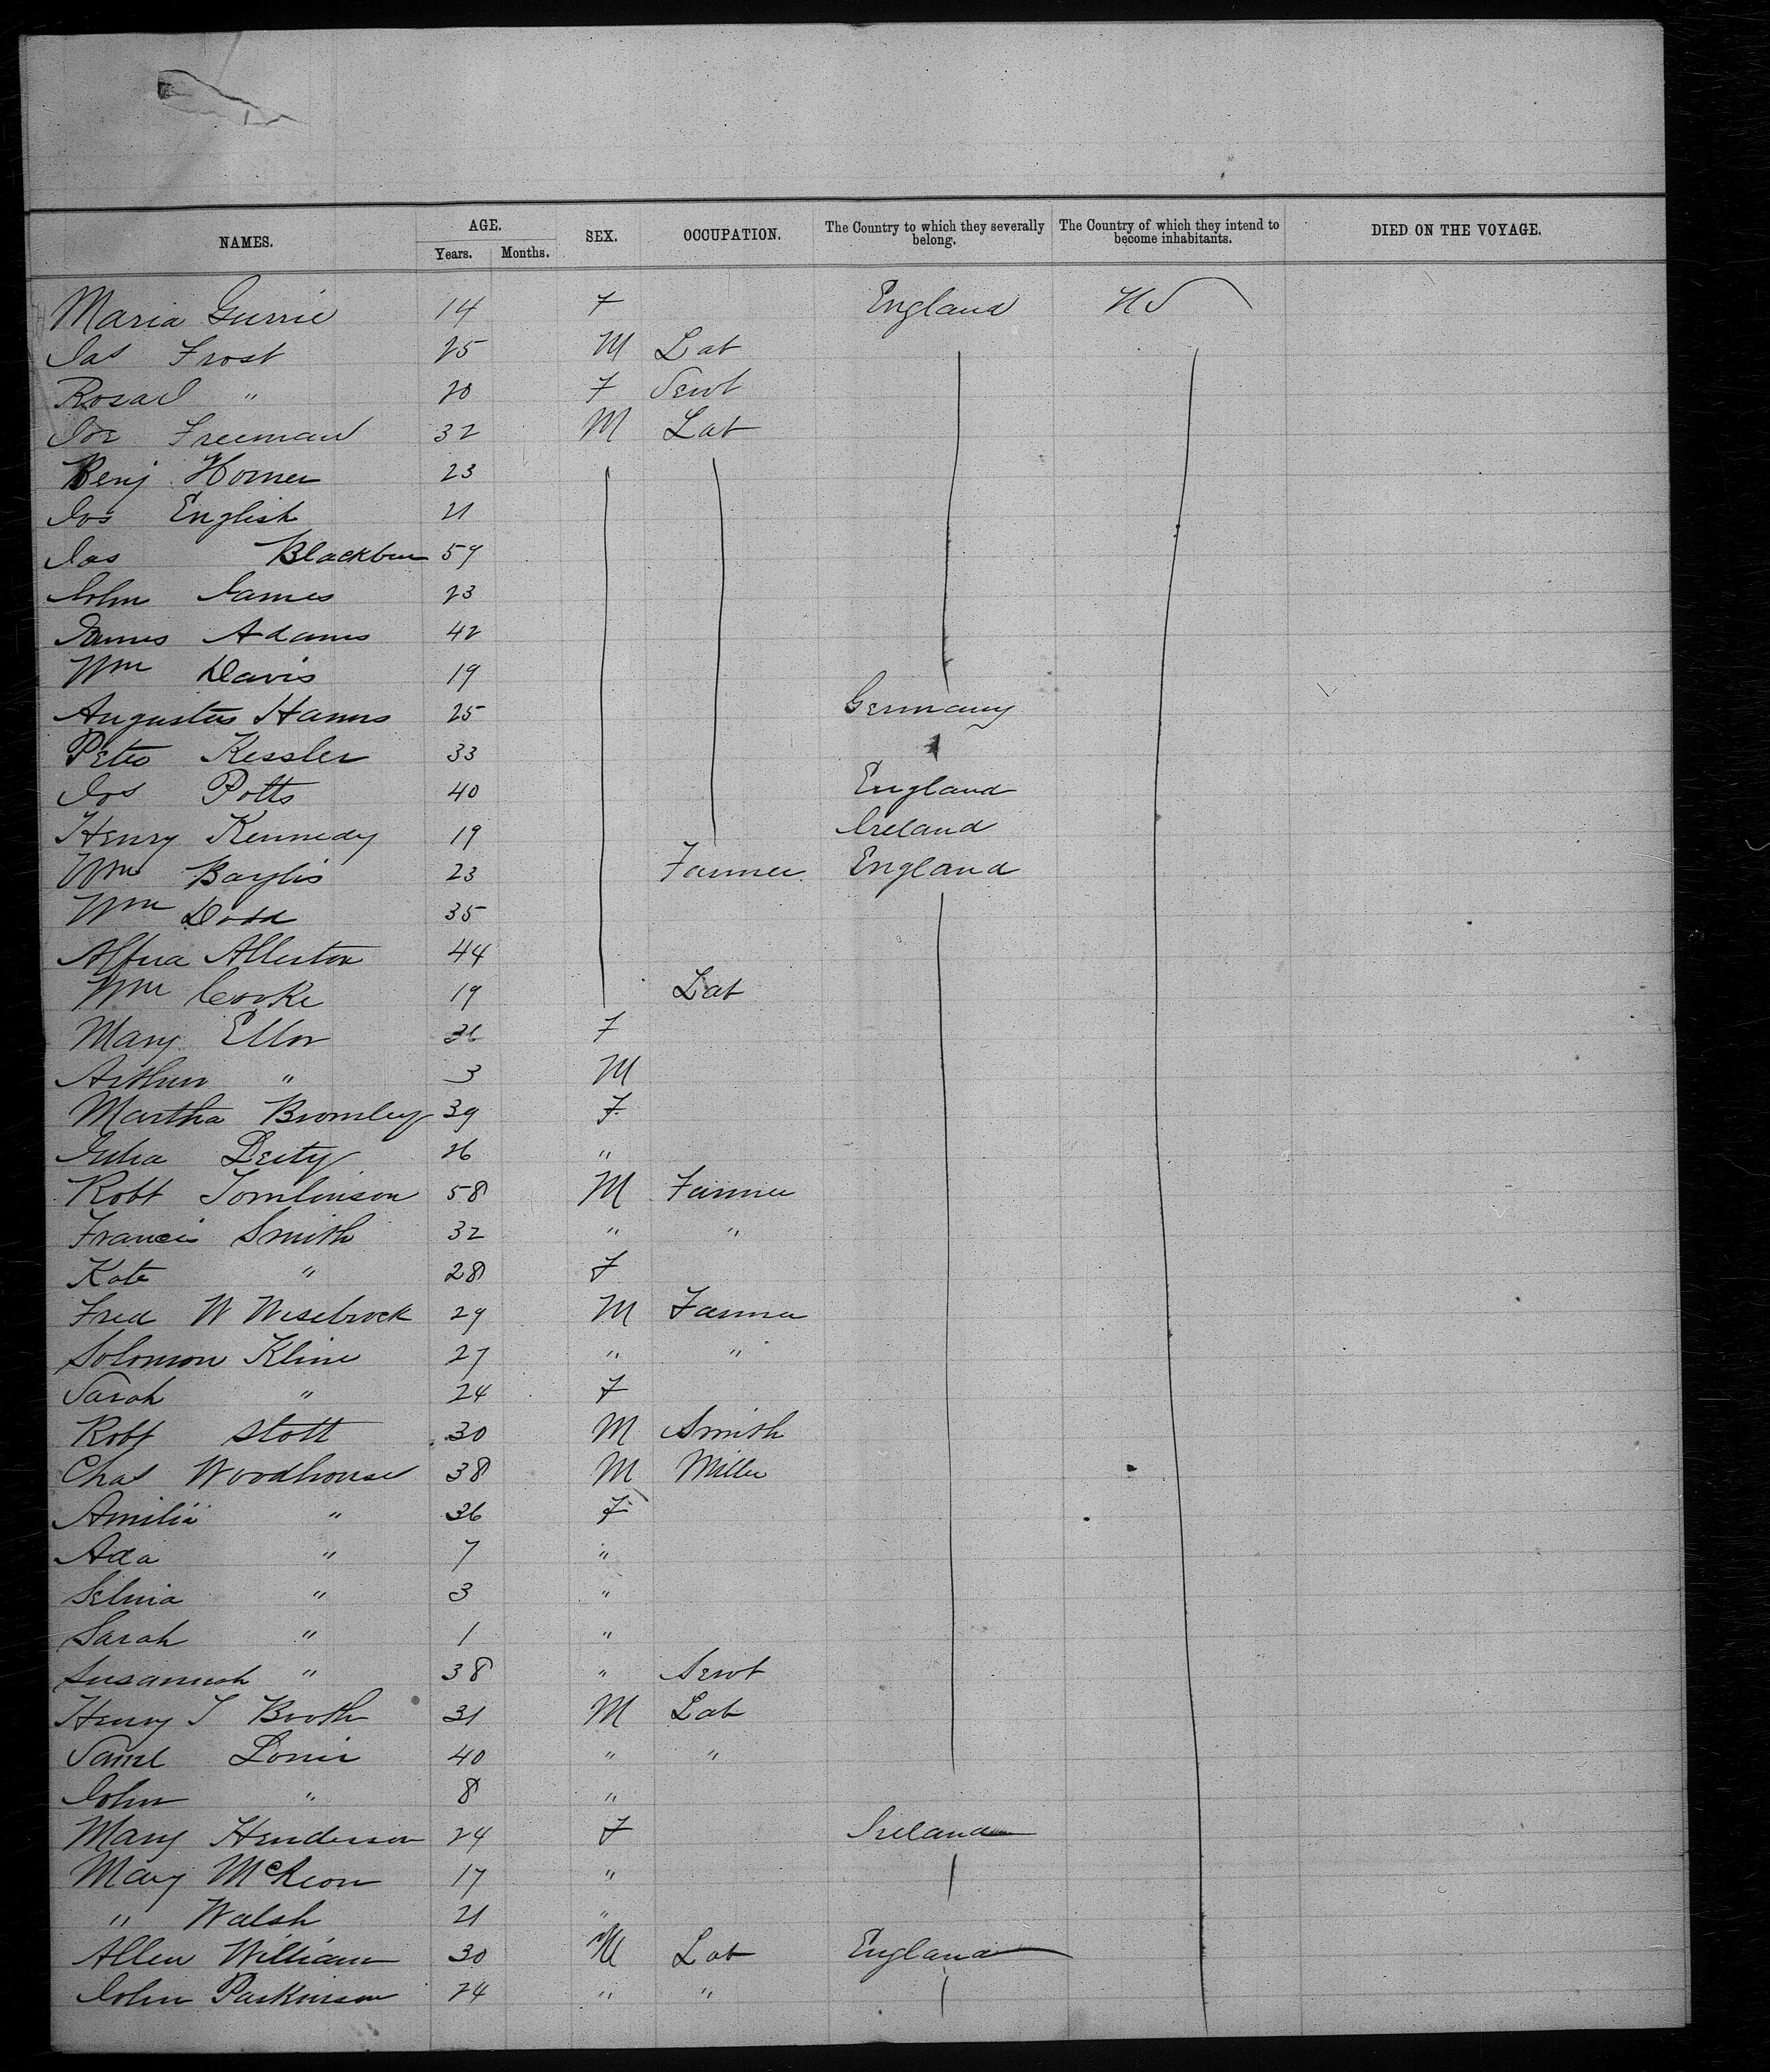 NAMES. AGE. SEX. OCCUPATION. The Country to which they severally belong. The Country of which they intend to become inhabitants. DIED ON THE VOYAGE.
Years. Months.
Maria 14 F England US
Jas Frost 25 M Lab
Rosad " 20 F Servt
Joe Freeman 32 M Lab
Benj Horner 23
Jos English 21
Jas Blackburn 59
John James 23
James Adams 42
Wm Davis 19
Augustus Hanns 25 Germany
Peter Kessler 33
Jos Potts 40 England
Henry Kennedy 19 Ireland
Wm Baylis 23 Farmer England
Wm Dodd 35
Allerton 44
Wm Cooke 19 Lab
Mary Ellor 36 F
Arthur " 3 M
Martha Bromley 39 F
Julia Deity 26 "
Robt Tomlinson 58 M Farmer
Francis Smith 32 " "
Kate " 28 F
Fred W Wisebrock 29 M Farmer
Solomon Kline 27 " "
Sarah " 24 F
Robt Stott 30 M Smith
Chas Woodhouse 38 M Miller
Amilia " 36 F
Ada " 7 "
Selina " 3 "
Sarah " 1 "
Susannah " 38 " Servt
Henry J Booth 31 M Lab
Saml 40 " "
John " 8 "
Mary Henderson 24 F Ireland
Mary McKeon 17 "
" Walsh 21 "
Allen William 30 M Lab England
John Parkinson 24 " "